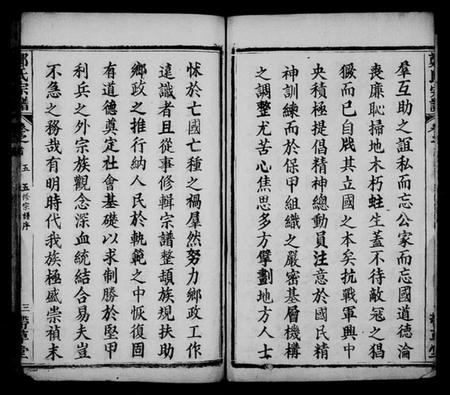 羣互助之誼私而忘公家而忘國道德淪
喪廉恥掃地木朽蛀生蓋不待敵寇之猖
獗而已自戕其立國之本矣抗戰軍興中
央積極提倡精神總動員注意於國民精
神訓練而於保甲組織之嚴密基層機構
之調整尤苦心焦思多方擘劃地方人士
怵於亡國亡種之禍羣然努力鄉政工作
遠識者且從事修輯宗譜整頡族規扶助
鄉政之推行納人民於軌範之中恢復固
有道德奠定社會基礎以求制勝於堅甲
利兵之外宗族觀念深血統結合易夫豈
不急之務哉有明時代我族極盛崇禎末
鄭氏宗譜
卷之首
五 五修宗譜序
三
帶草堂